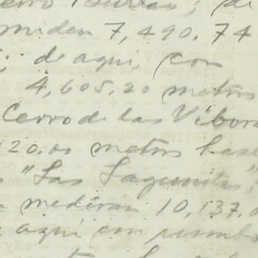 erro Burras; de
miden 7,490.74
; de aqui, con
4,605.20 metros
Cerro de las Vibora
20.00 metros has
"Las Lagunitas"
medirán 10,137.0
aqui con rumbo